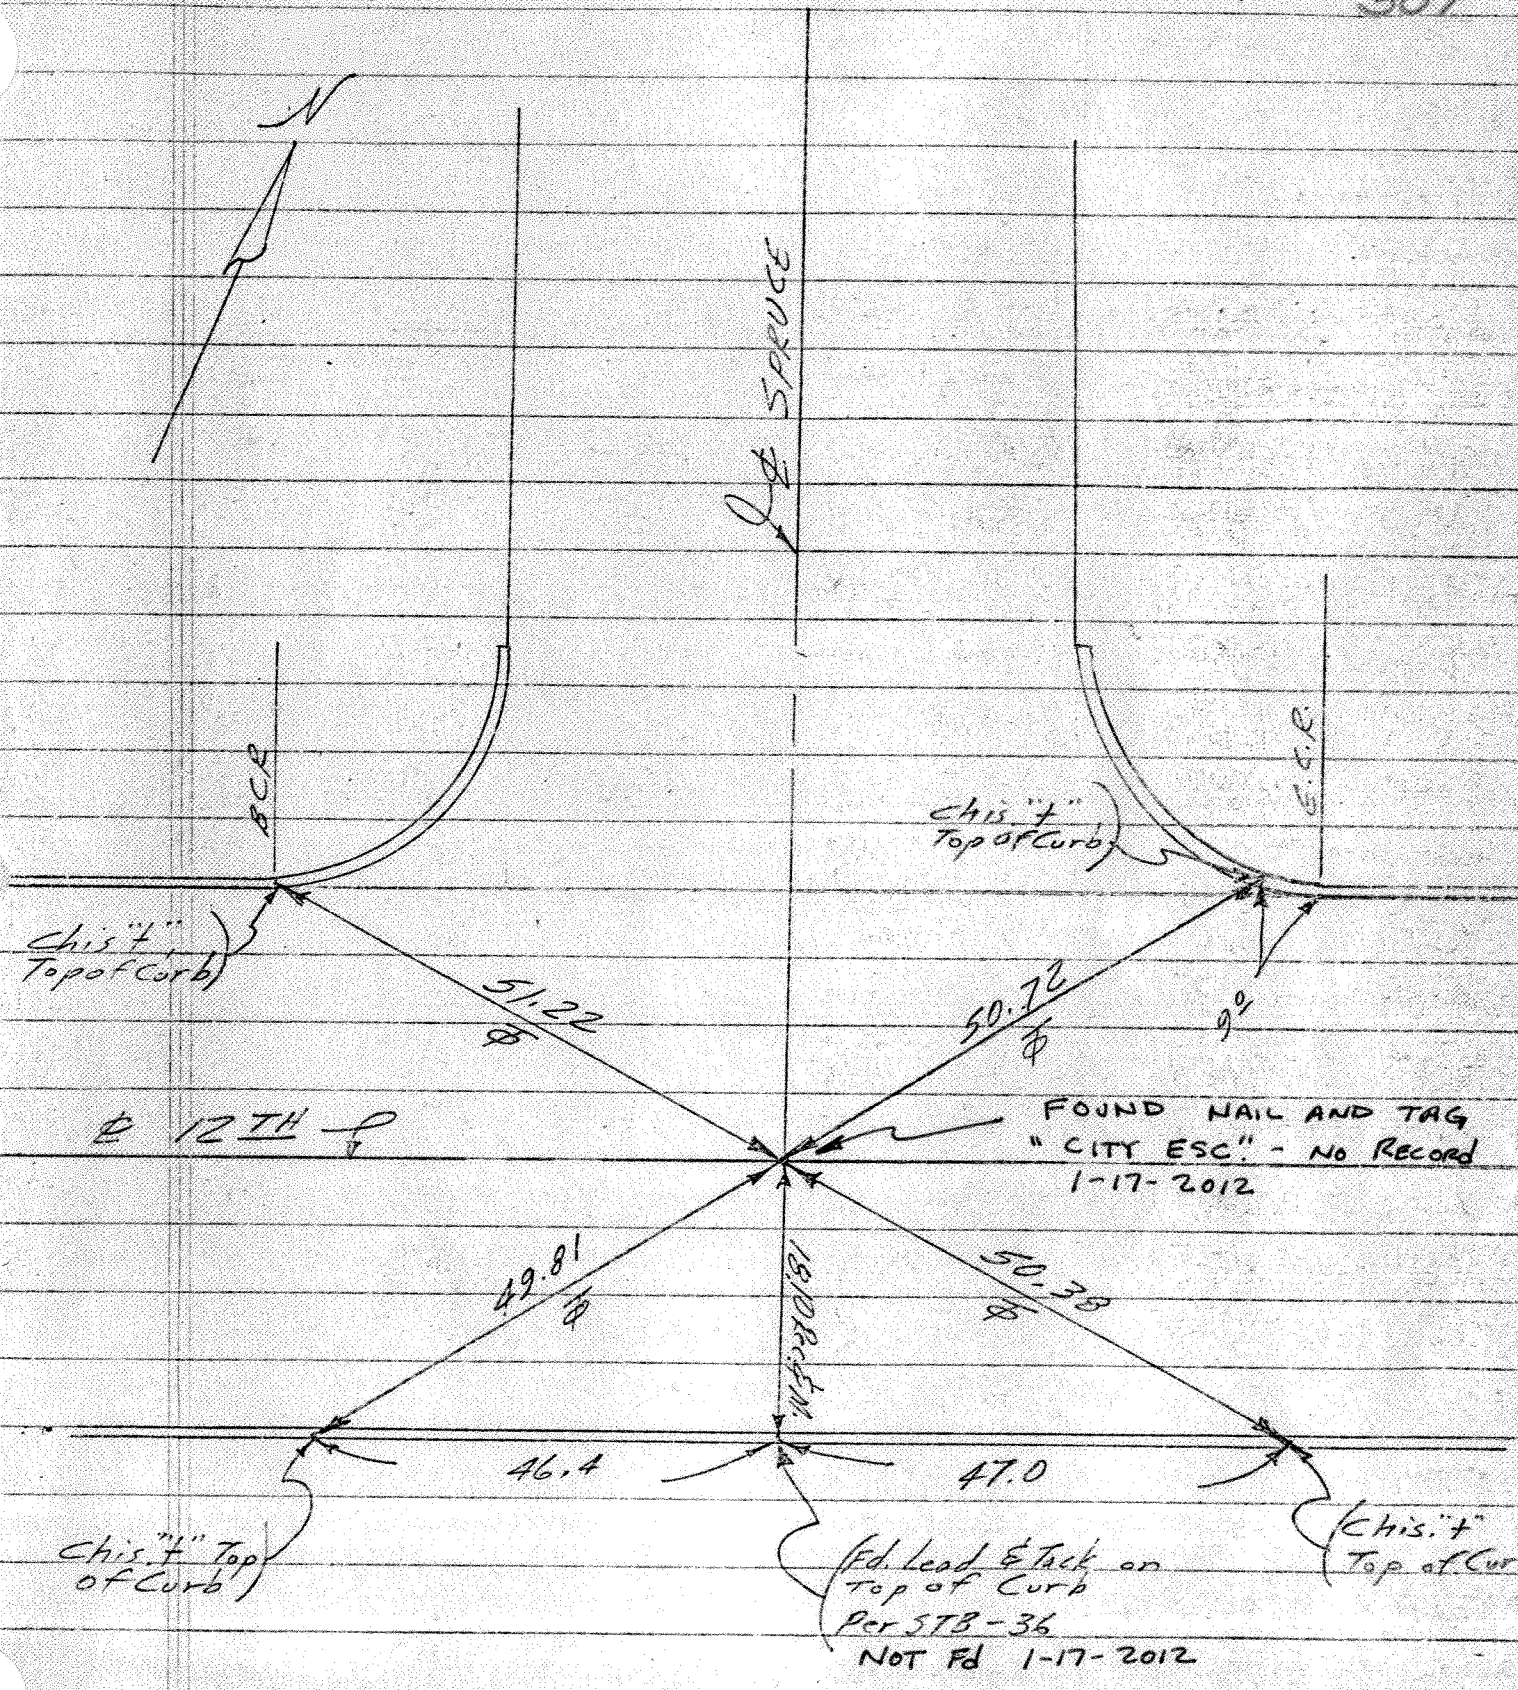 N
℄ SPRUCE
BCR
E.C.R.
Chis. "+"
Top of Curb
Chis "+"
Top of Curb
51.22
50.72
9º
℄ 12TH
FOUND NAIL AND TAG
"CITY ESC." - NO RECORD
1-17-2012
49.81
18.10 Rec. & M.
50.38
46.4
47.0
Chis. "+" Top
of Curb
Fd. Lead & Tack on
Top of Curb
Per STB-36
NOT Fd 1-17-2012
Chis. "+"
Top of Cur